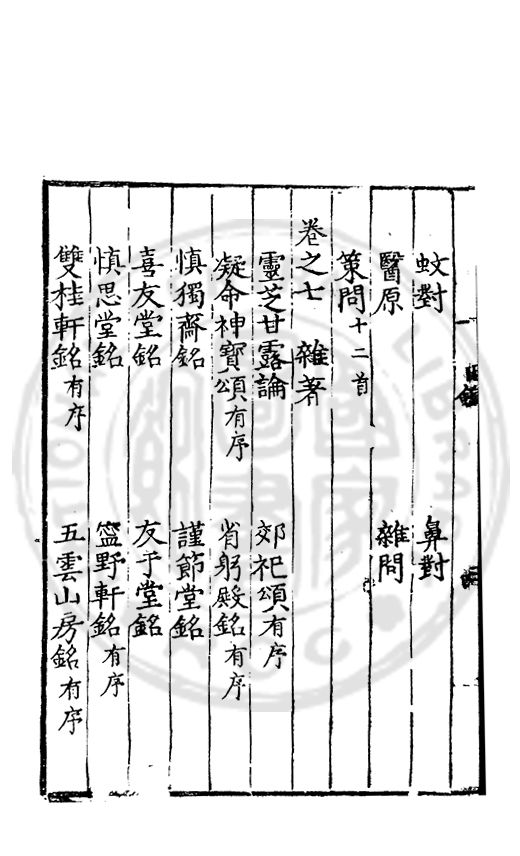 蚊對　鼻對
醫原　雜問
策問十二首
卷之七　雜著
靈芝甘露論　郊祀頌有序
凝命神寶頌有序　省躬殿銘有序
慎獨齋銘　謹節堂銘
喜友堂銘　友于堂銘
慎思堂銘　寍野軒銘有序
雙桂軒銘有序　五雲山房銘有序